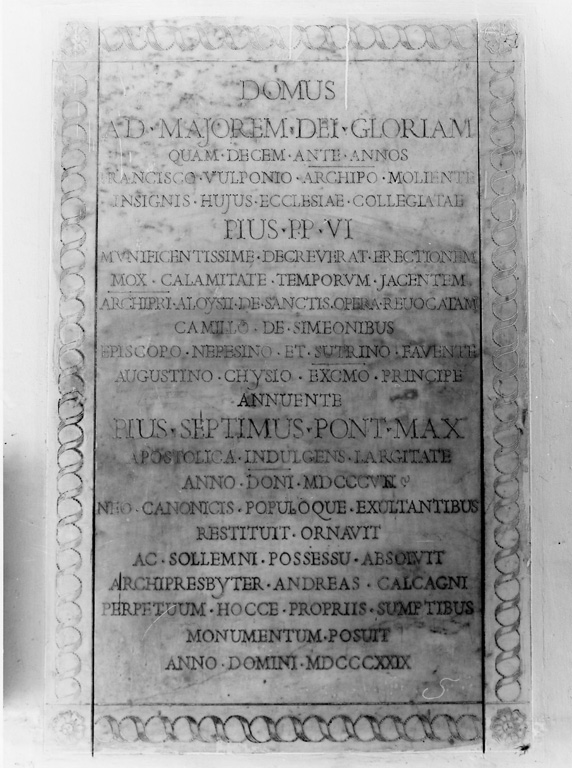 DOMUS
AD·MAJOREM·DEI·GLORIAM
QUAM·DECEM·ANTE·ANNOS
FRANCISCO·VULPONIO·ARCHIPO·MOLIENTE
INSIGNIS·HUJUS·ECCLESIAE·COLLEGIATAE
PIUS·PP·VI
MVNIFICENTISSIME·DECREVERAT·ERECTIONEM
MOX·CALAMITATE·TEMPORVM·JACENTEM
ARCHIPRI·ALOYSII·DE·SANCTIS·OPERA·REUOCATAM
CAMILLO·DE·SIMEONIBUS
EPISCOPO·NEPESINO·ET·SUTRINO·FAVENTE
AUGUSTINO·CHYSIO·EXCMO·PRINCIPE
ANNUENTE
PIUS·SEPTIMUS·PONT·MAX
APOSTOLICA·INDULGENS·LARGITATE
ANNO·DONI·
NEO·CANONICIS·POPULOQUE·EXULTANTIBUS
RESTITUIT·ORNAVIT
AC·SOLLEMNI·POSSESSU·ABSOLVIT
ARCHIPRESBYTER·ANDREAS·CALCAGNI
PERPETUUM·HOCCE·PROPRIIS·SUMPTIBUS
MONUMENTUM·POSUIT
ANNO·DOMINI·MDCCCXXIX